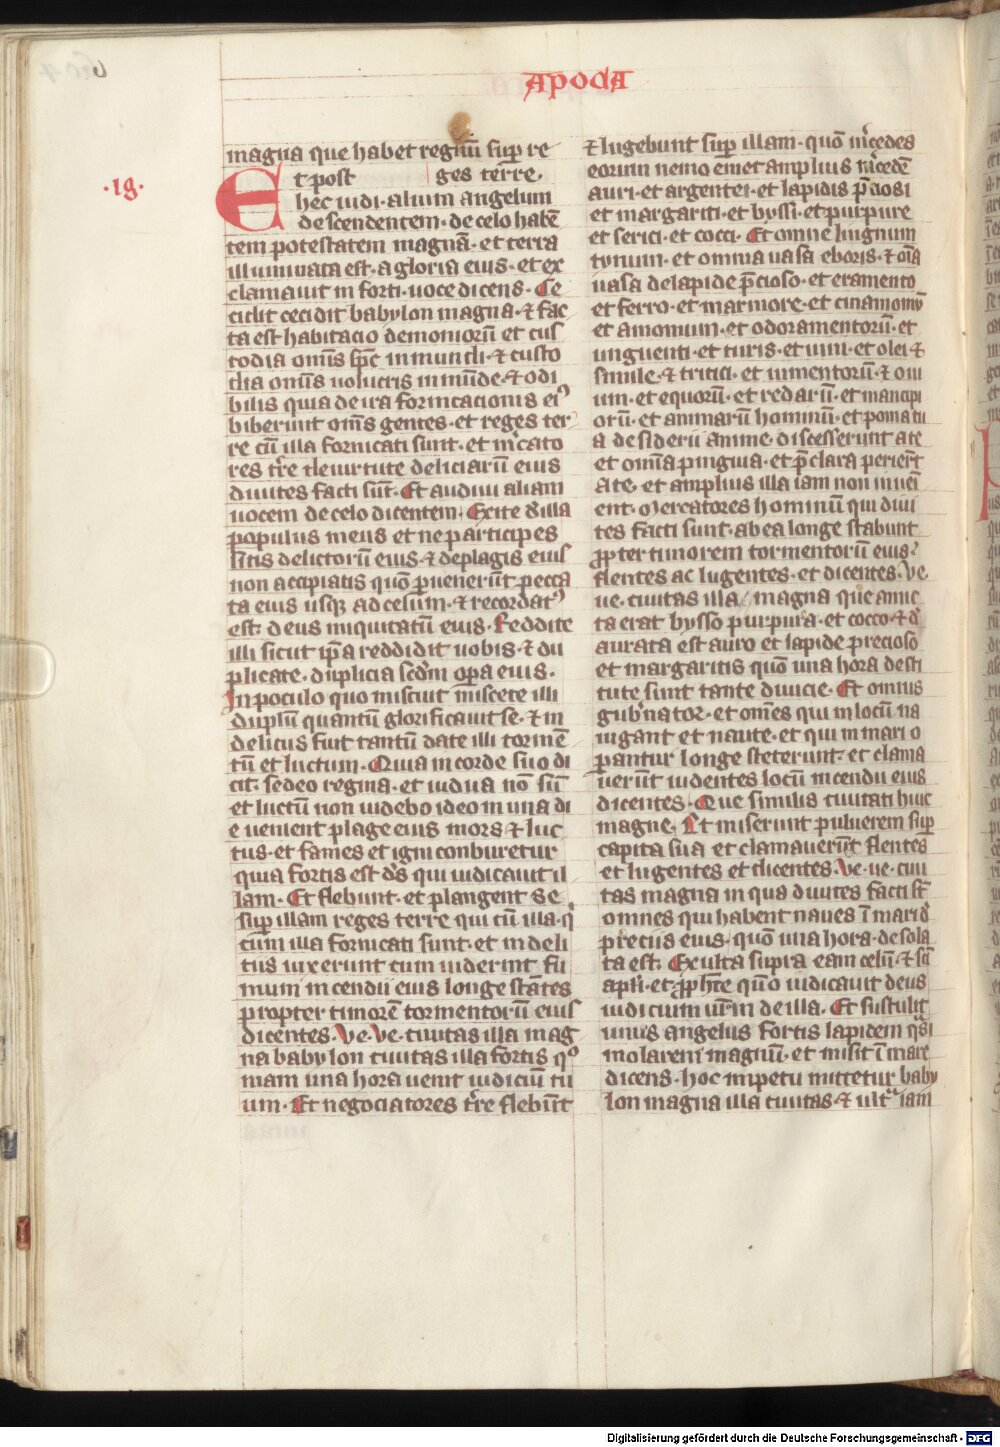 APOCA
magna que habet regnū suꝑ re
·19·
Et post ges terre.
hec uidi·alium angelum
descendentem·de celo habē
tem potestatem magnā·et terra
illuminata est·a gloria eius·et ex
clamauit in forti·uoce dicens·Ce
cidit cecidit babylon magna·⁊ fac
ta est habitacio demoniorū et cus
todia omīs sp̄c inmundi·⁊ custo
dia omīs uolucris inmūde·⁊ odi
bilis quia de ira fornicacionis eiꝰ
biberunt om̄s gentes·et reges ter
re cū illa fornicati sunt·et m̄cato
res tr̄re de uirtute deliciarū eius
diuites facti sūt·Et audiui aliam
uocem de celo dicentem·Exite d̄ illa
populus meus et ne participes
sitis delictorū eius·⁊ de plagis eius
non accipiatis quō ꝑuenerūt pecca
ta eius usqꝫ ad celum·⁊ recordatꝰ
est: deus iniquitatū eius·Reddite
illi sicut ip̄a reddidit uobis·⁊ du
plicate·duplicia scd̄m oꝑa eius·
In poculo quo miscuit miscete illi
duplū quantū glorificauit se·⁊ in
delicijs fuit tantū date illi tormē
tū et luctum·Quia in corde suo di
cit: sedeo regina·et uidua nō sū
et luctū non uidebo ideo in una di
e uenient plage eius mors ⁊ luc
tus·et fames et igni conburetur
quia fortis est d̄s qui iudicauit il
lam·Et flebunt·et plangent se
suꝑ illam reges terre qui cū illa·q̄
cum illa fornicati sunt·et in deli
tiis uixerunt cum uiderint fu
mum incendii eius longe stātes
propter timorē tormentorū eius
dicentes·Ve·Ve·ciuitas illa mag
na babylon ciuitas illa fortis qꝰ
niam una hora uenit iudiciū tu
um·Et negociatores tr̄re flebūt
⁊ lugebunt suꝑ illam·quō m̄cedes
eorum nemo emet amplius m̄cedē
auri·et argentei·et lapidis p̄ciosi
et margariti·et byssi·et purpure
et serici·et cocci·Et omne lingnum
tynum·et omnia uasa eboris·⁊ oīa
uasa de lapide p̄cioso·et eramento
et ferro·et marmore·et cinamomū
et amomum·et odoramentorū·et
unguenti·et turis·et uini·et olei ⁊
simile·⁊ tritici·et iumentorū·⁊ oui
um·et equorū·et redarū·et mancipi
orū·et animarū hominū·et poma tu
a desiderii anime·discesserunt a te
et omīa pingwia·et p̄clara perierūt
a te·et amplius illa iam non inueī
ent·Mercatores hominū qui diui
tes facti sunt·ab ea longe stabunt
ꝓpter timorem tormentorū eius:
flentes ac lugentes·et dicentes·Ve·
ue·ciuitas illa magna que amic
ta erat bysso purpura·et cocco·⁊ d̄
aurata est auro et lapide precioso
et margaritis quō una hora desti
tute sunt tante diuicie·Et omnis
gub̄nator·et om̄es qui in locū na
uigant et naute·et qui in mari o
perantur longe steterunt·et clama
uerūt uidentes locū incendii eius
dicentes·Que similis ciuitati huic
magne·Et miserunt puluerem suꝑ
capita sua et clamauerūt flentes
et lugentes et dicentes·Ve·ue·ciui
tas magna in qua diuites facti st̄
omnes qui habent naues ī mari d̄
preciis eius·quō una hora·desola
ta est·Exulta supra eam celū·⁊ sc̄i
apl̄i·et ꝓph̄te quō iudicauit deus
iudicium ur̄m de illa·Et sustulit
unus angelus fortis lapidem q̄si
molarem magnū·et misit ī mare
dicens·hoc impetu mittetur baby
lon magna illa ciuitas ⁊ ultͣ iam
Digitalisierung gefördert durch die Deutsche Forschungsgemeinschaft - DFG